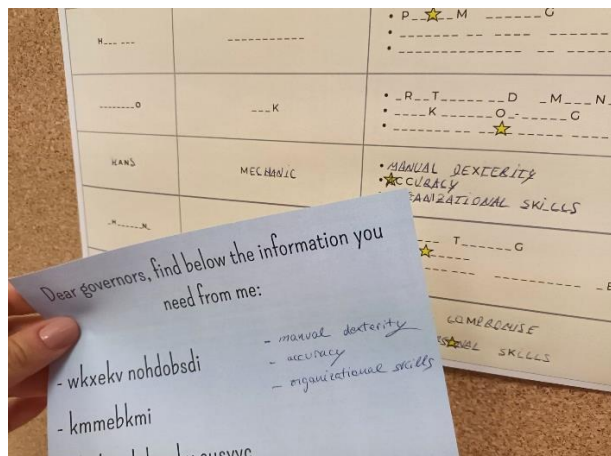 • P_ _ _M _ _ _ _ _ _G
H_ _ _ _ _
_ _ _ _ _ _ _O
_ _ _K
• _R_ _T_ _ _ _ _ _ _D _M_ _ _N_
_ _ _ _K _ _ _ _ _ _O_-_ _ _ _ _ _G
HANS
MECHANIC
• MANUAL DEXTERITY
• ACCURACY
ORGANIZATIONAL SKILLS
_ _ _ T_ _ _ _ _ _G
COMPROMISE
SKILLS
Dear governors, find below the information you
need from me:
- wkxekv nohdobsdi
- kmmebkmi
- manual dexterity
- accuracy
- organizational skills